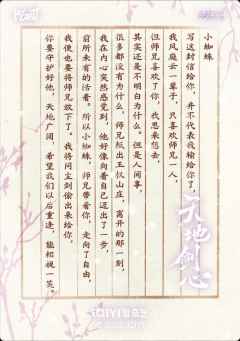 小蜘蛛
写这封信给你，并不代表我输给你了，
我风庭云一辈子，只喜欢师兄一人，
但师兄喜欢了你，我思来想去，
其实还是不明白为什么。但是人间事，
很多都没有为什么，师兄纵出王权山庄，离开的那一刻，
我在内心突然感觉到，他好像向着自己迈出了一步，
前所未有的活着。所以小蜘蛛，师兄带着你，走向了自由，
我便也要将师兄放下了。我将问尘剑偷出来给你，
你要守护好他，天地广阔，希望我们以后重逢，能相视一笑。
天地剑心